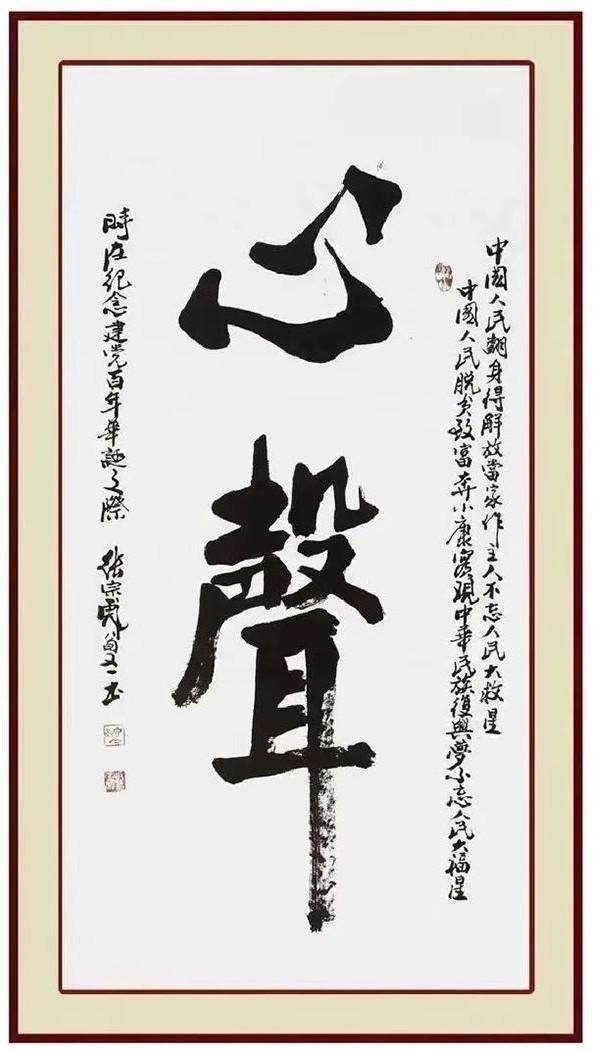 中國人民翻身得解放當家作主人不忘人民大救星
中國人民脱贫致富奔小康實現中華民族復興夢不忘人民大福星
心聲
時在紀念建党百年華誕之際
张宗彪
书